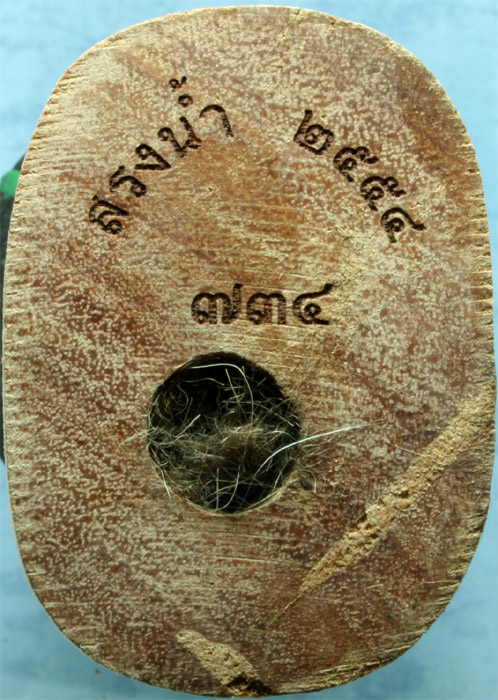 สรงน้ำ ๒๕๕๔
๗๓๔